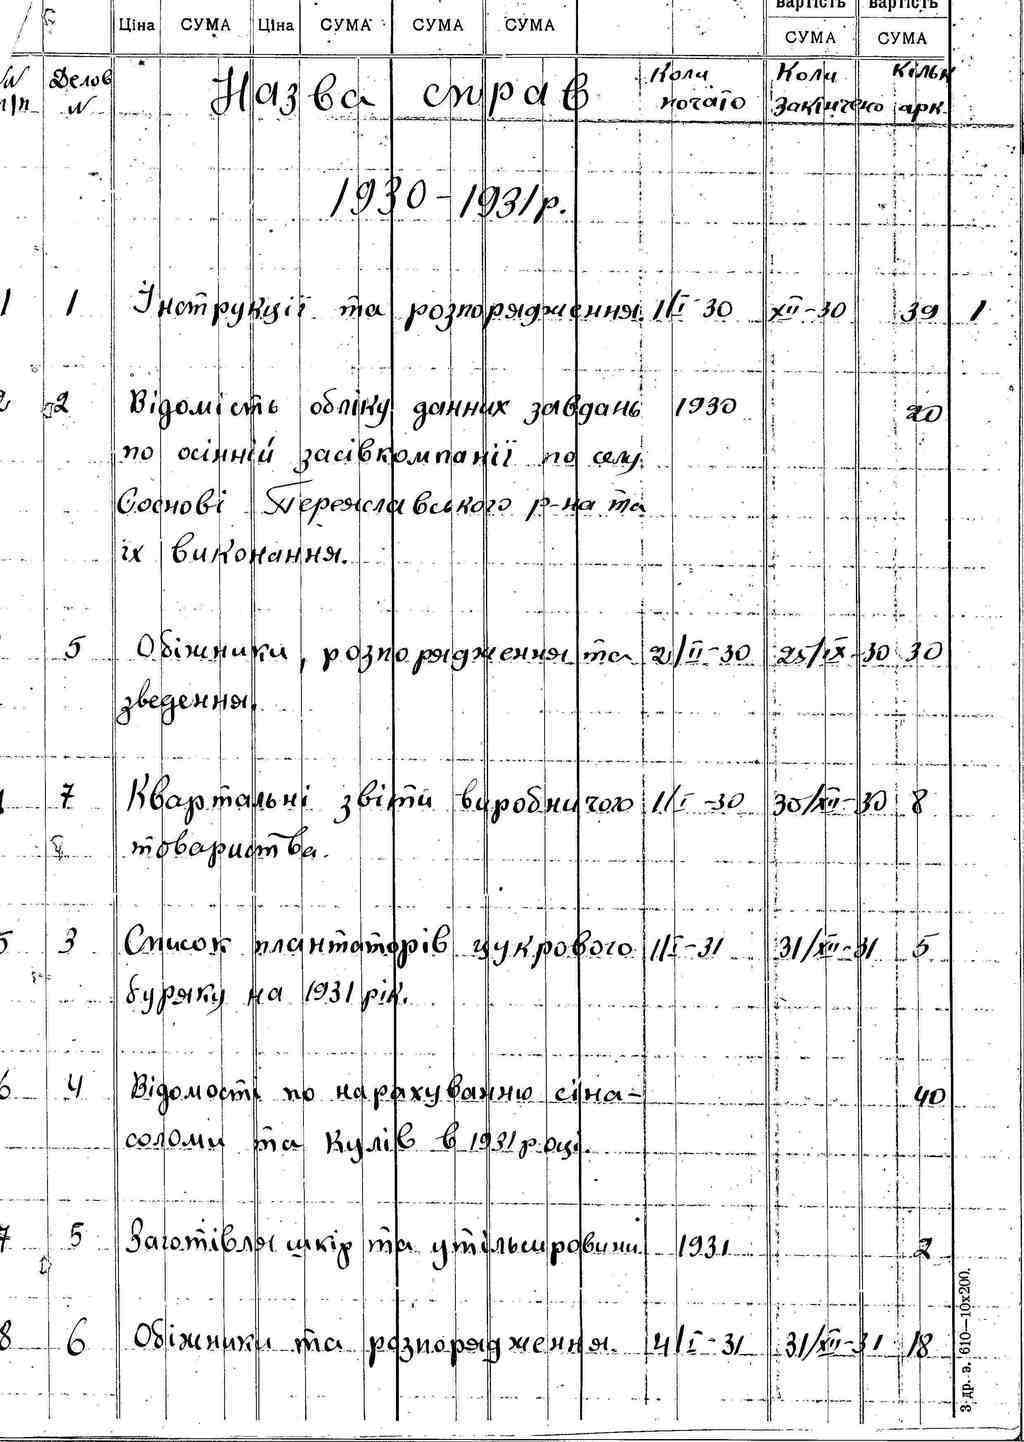 вартість вартість
Ціна СУМА Ціна СУМА СУМА СУМА СУМА СУМА
№ п/п Делов № Назва справ Коли почато Коли закінчено Кільк арк.
1930-1931р.
1 1 Інструкції та розпорядження. 1/I-30 XII-30 39 1
2 2 Відомість обліку данних завдань 1930 20
по осінній засівкомпанії по селу
Соснові Переяславського р-на та
їх виконання.
5 Обіжники, розпорядження та 2/II-30 25/IX-30 30
зведення.
7 Квартальні звіти виробничого 1/I-30 30/XII-30 8
товариства.
5 3 Список плантаторів цукрового 1/I-31 31/XII-31 5
буряку на 1931 рік.
6 4 Відомості по нарахуванню сіна- 40
соломи та кулів в 1931 році.
7 5 Заготівля шкір та утільсировини 1931 2
8 6 Обіжники та розпорядження. 4/I-31 31/XII-31 18
З-др. з. 610—10х200.